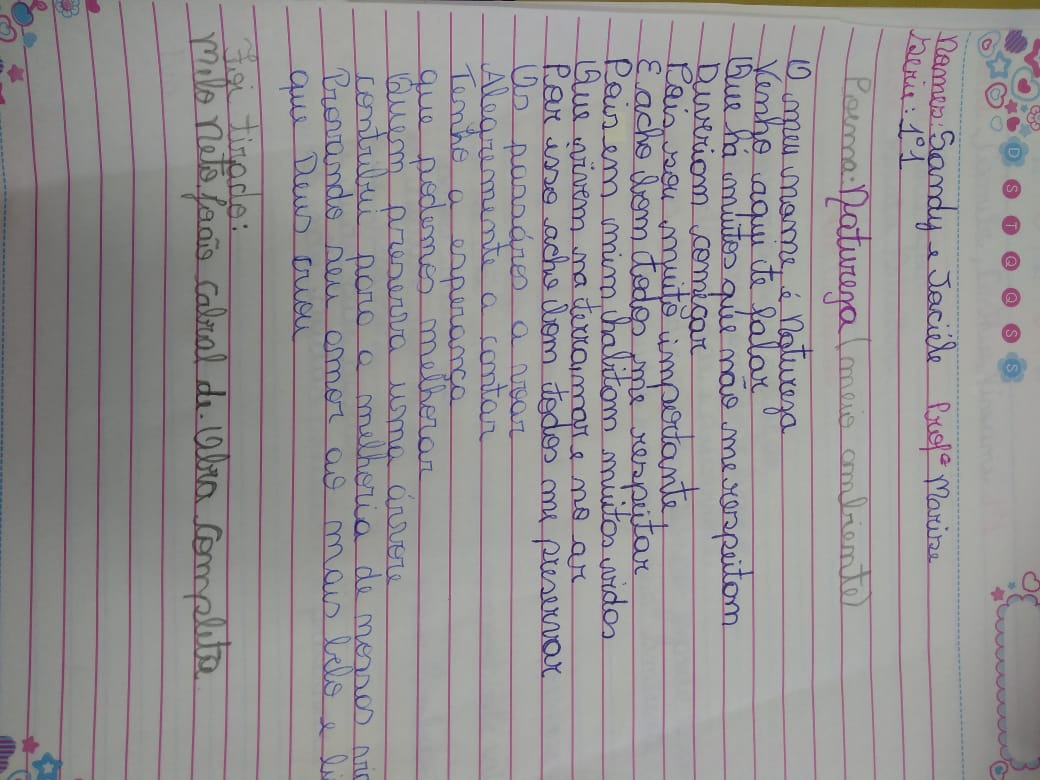 D S T Q Q S S
Nomes: Sandy e Jaciéle Profª Marise
Serie: 1º 1
Poema: Natureza (meio ambiente)
O meu nome é Natureza
Venho aqui te falar
Que há muitos que não me respeitam
Deveriam começar
Pois sou muito importante
E acho bom todos me respeitar
Pois em mim habitam muitas vidas
Que vivem na terra, mar e no ar
Por isso acho bom todos me preservar
Os passáros a voar
Alegremente a cantar
Tenho a esperança
que podemos melhorar
Quem preserva uma árvore
contribui para a melhoria de nossas
Provando seu amor ao mais belo e
que Deus criou
Foi tirado:
Melo Neto, João cabral de. Obra completa.